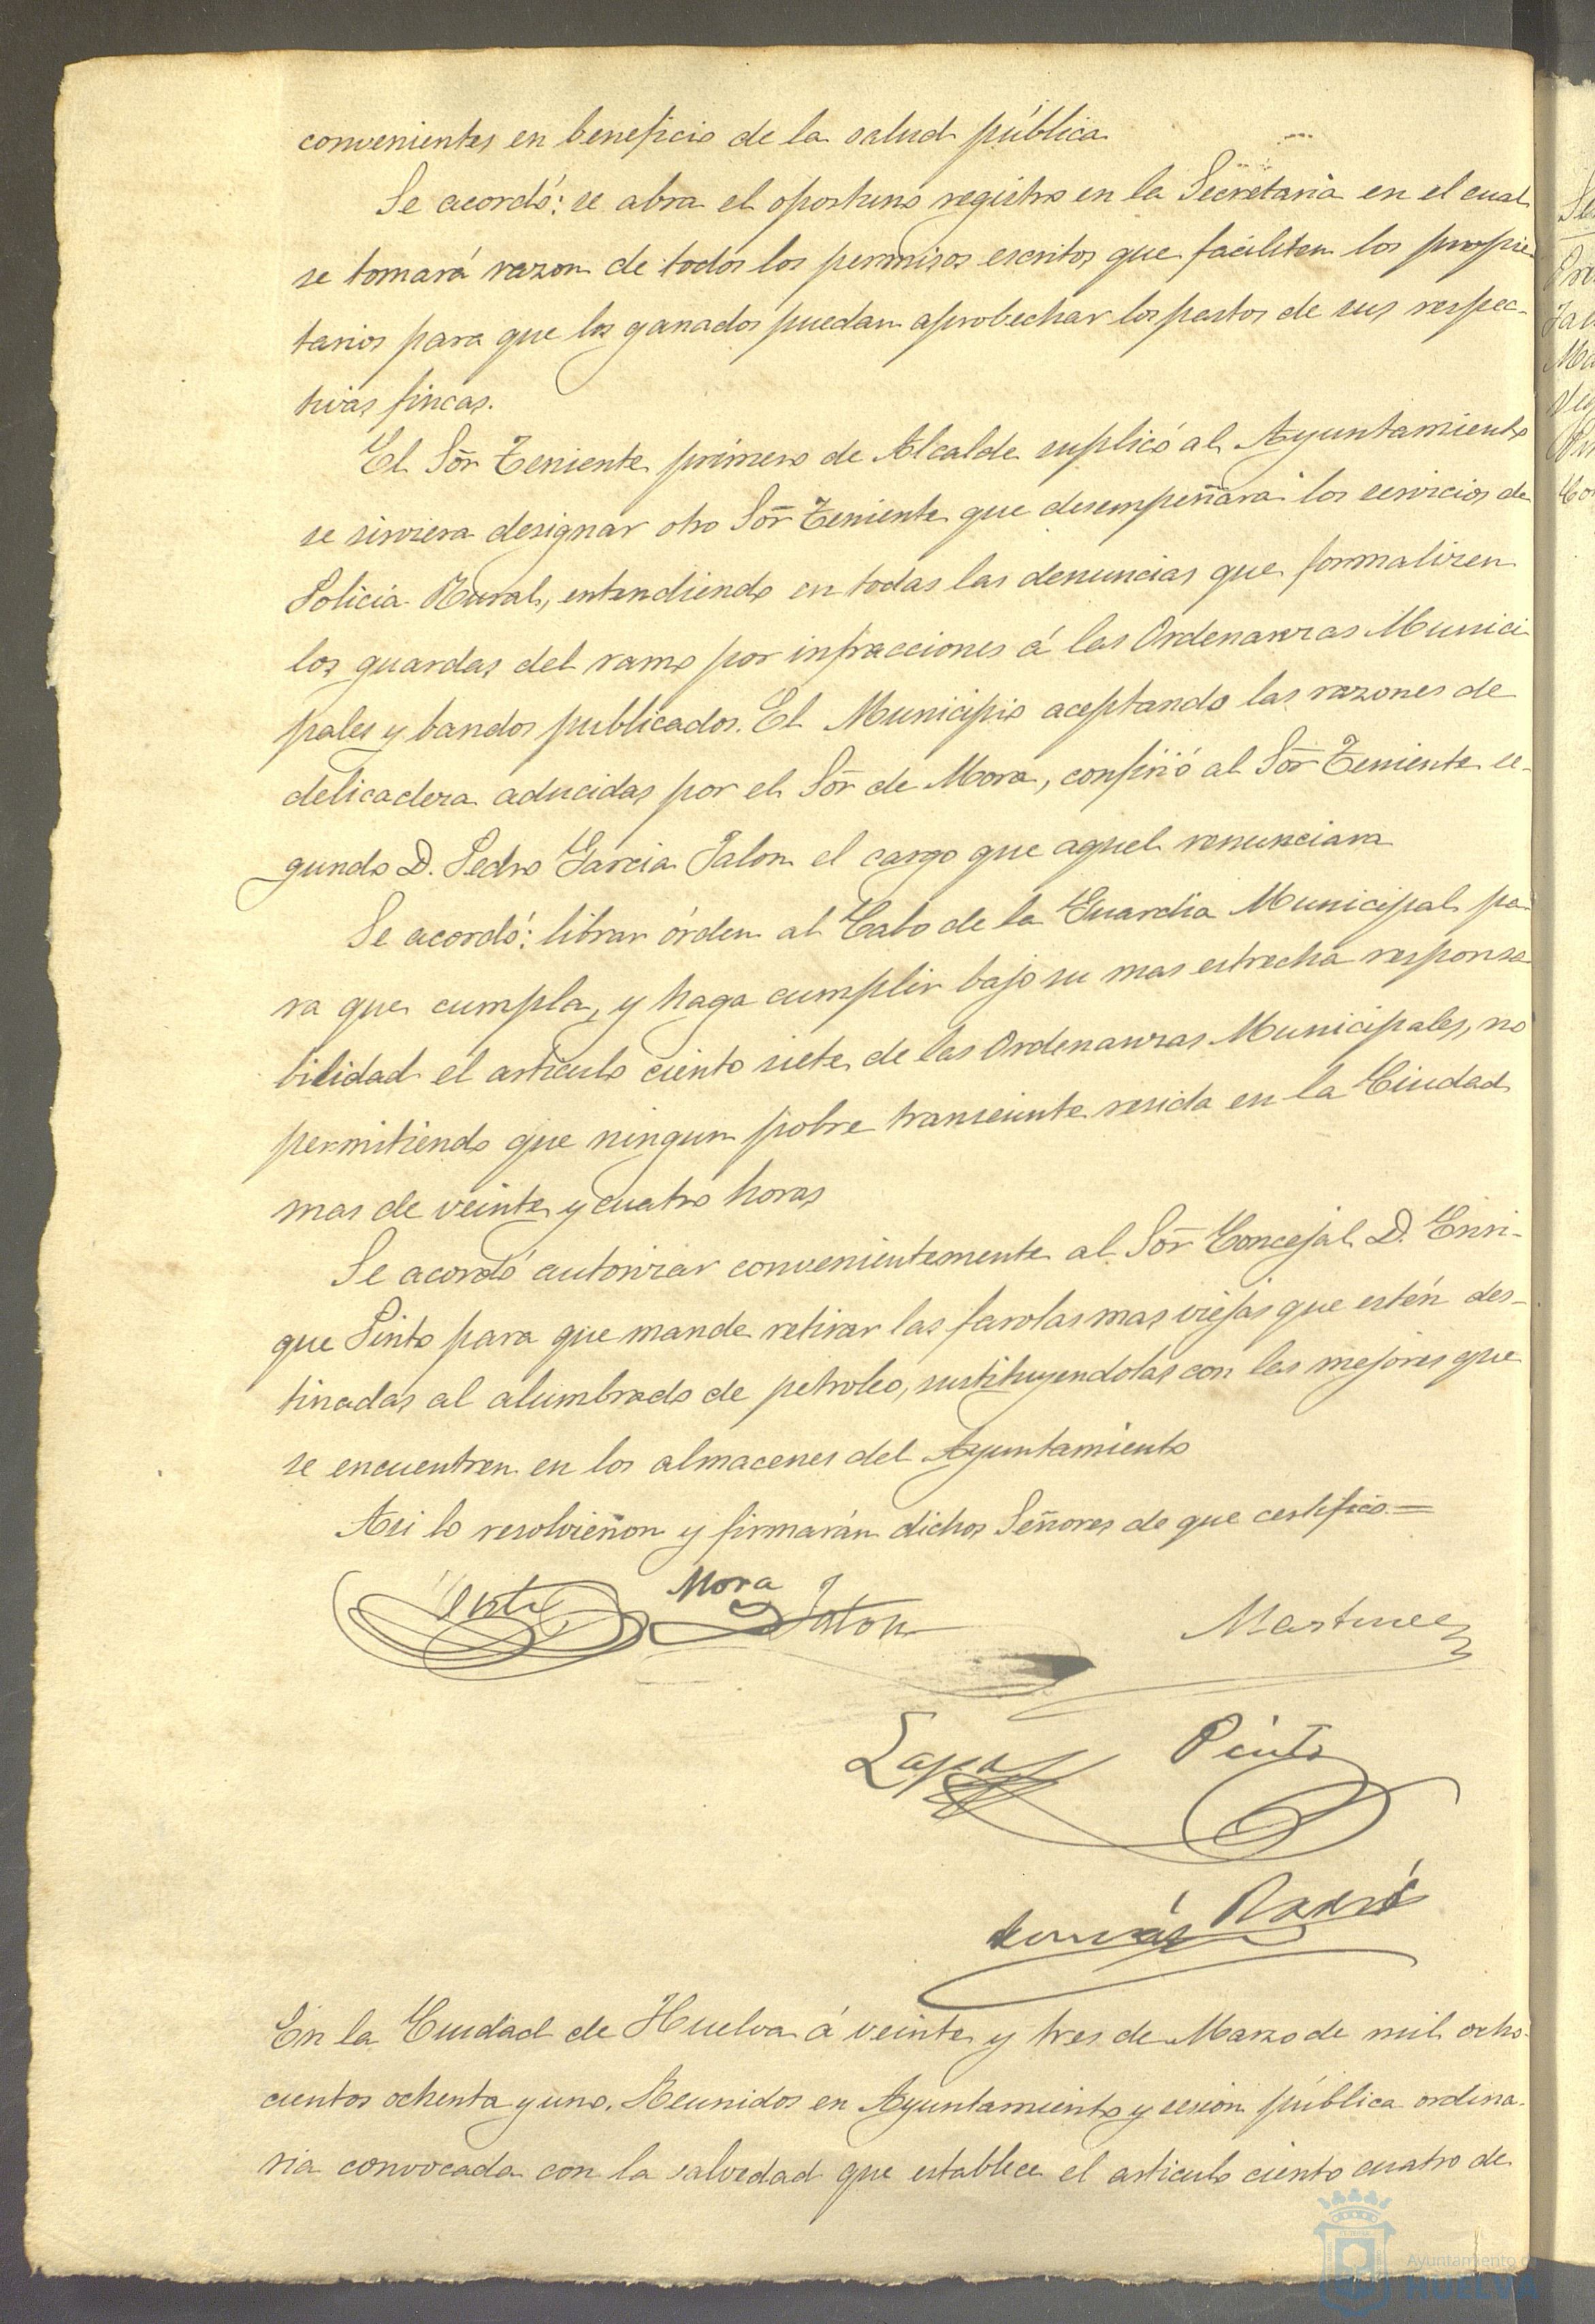 convenientes en beneficio de la salud pública
Se acordó: se abra el oportuno registro en la Secretaria en el cual
se tomará razon de todos los permisos escritos que faciliten los propie
tarios para que los ganados puedan aprobechar los pastos de sus respec-
tivas fincas.
El Sõr Teniente primero de Alcalde suplicó al Ayuntamiento
se sirviera designar otro Sõr Teniente que desempeñara los servicios de
Policia Rural, entendiendo en todas las denuncias que formalizen
los guardas del ramo por infracciones á las Ordenanzas Munici
pales y bandos publicados. El Municipio aceptando las razones de
delicadeza aducidas por el Sõr de Mora, confirió al Sõr Teniente se-
gundo D. Pedro Garcia Jalon el cargo que aquel renunciara
Se acordó: librar órden al Cabo de la Guardia Municipal pa
ra que cumpla, y haga cumplir bajo su mas estrecha responsa
bilidad el articulo ciento siete de las Ordenanzas Municipales, no
permitiendo que ningun pobre transeunte resida en la Ciudad
mas de veinte y cuatro horas
Se acordó autorizar convenientemente al Sõr Concejal D. Enri-
que Pinto para que mande retirar las farolas mas viejas que estén des-
tinadas al alumbrado de petroleo, sustituyendolas con las mejores que
se encuentren en los almacenes del Ayuntamiento
Asi lo resolvieron y firmarán dichos Señores de que certifico.=
Mora
Jalon
Martinez
Pinto
En la Ciudad de Huelva á veinte y tres de Marzo de mil ocho
cientos ochenta y uno. Reunidos en Ayuntamiento y sesion pública ordina-
ria convocada con la salvedad que establece el articulo ciento cuatro de
Ayuntamiento de
HUELVA